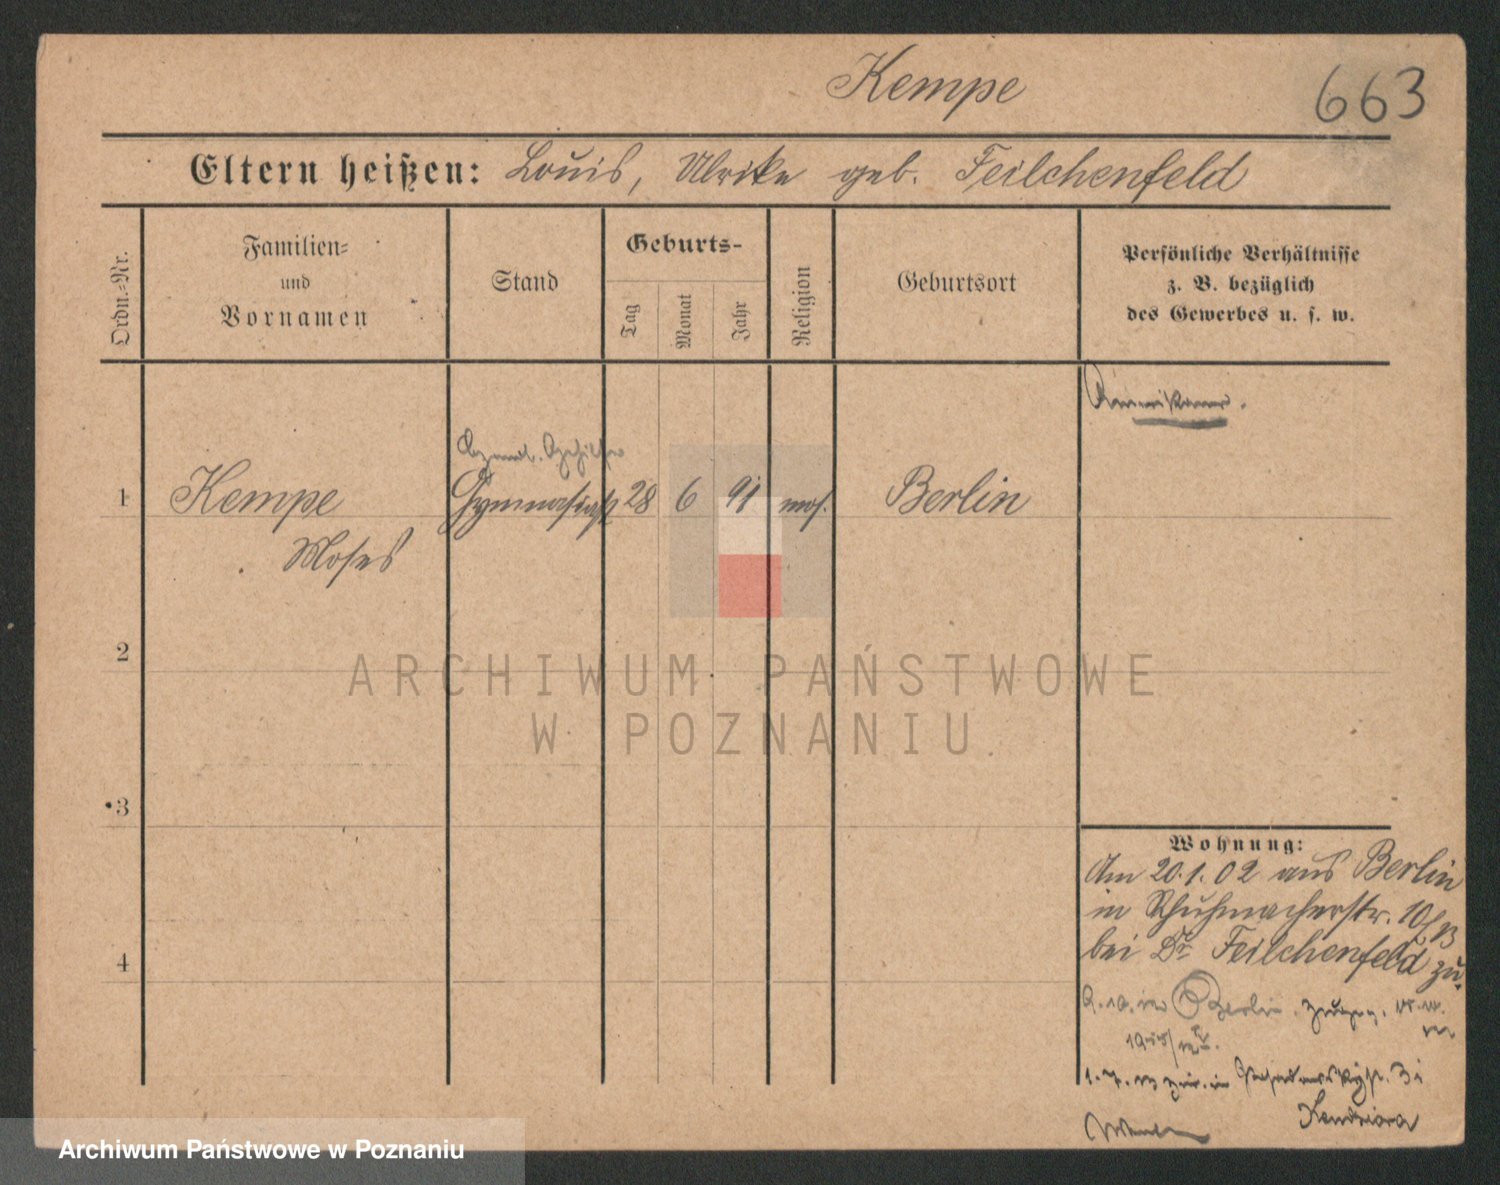 Kempe
663
Eltern heißen: Louis, Ulrike geb. Feilchenfeld
Ordn.-Nr.
Familien-
und
Vornamen
Stand
Geburts-
Tag
Monat
Jahr
Religion
Geburtsort
Persönliche Verhältnisse
z. B. bezüglich
des Gewerbes u. s. w.
Amerikaner.
1 Kempe Gymnasiast 28 6 91 mos. Berlin
Moses
2
ARCHIWUM PAŃSTWOWE
W POZNANIU
3
4
Wohnung:
Am 20.1.02 aus Berlin
in Schuhmacherstr. 10
bei Dr. Feilchenfeld zu.
in Berlin
1. 7. in 3 i
Kendziora
Archiwum Państwowe w Poznaniu